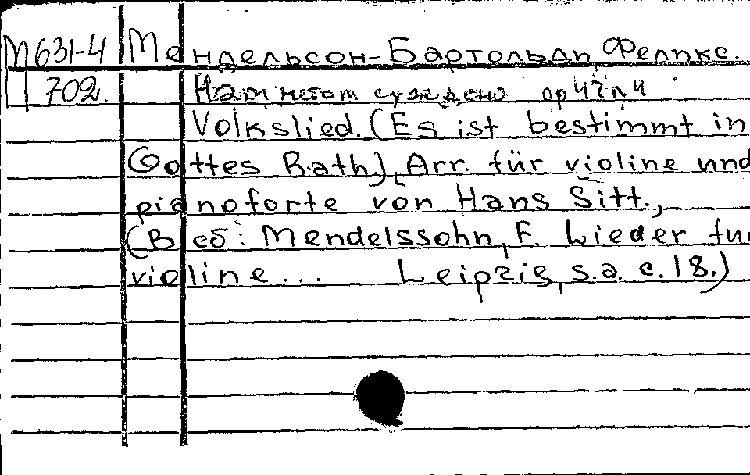 M631-4 Мендельсон-Бартольди, Феликс.
702. Нам
Volkslied. (Es ist bestimmt in
Gottes Rath), Arr. für violine und
pianoforte von Hans Sitt.,
(В сб: Mendelssohn, F. Lieder fur
violine... Leipzig, s.a. c.18.)